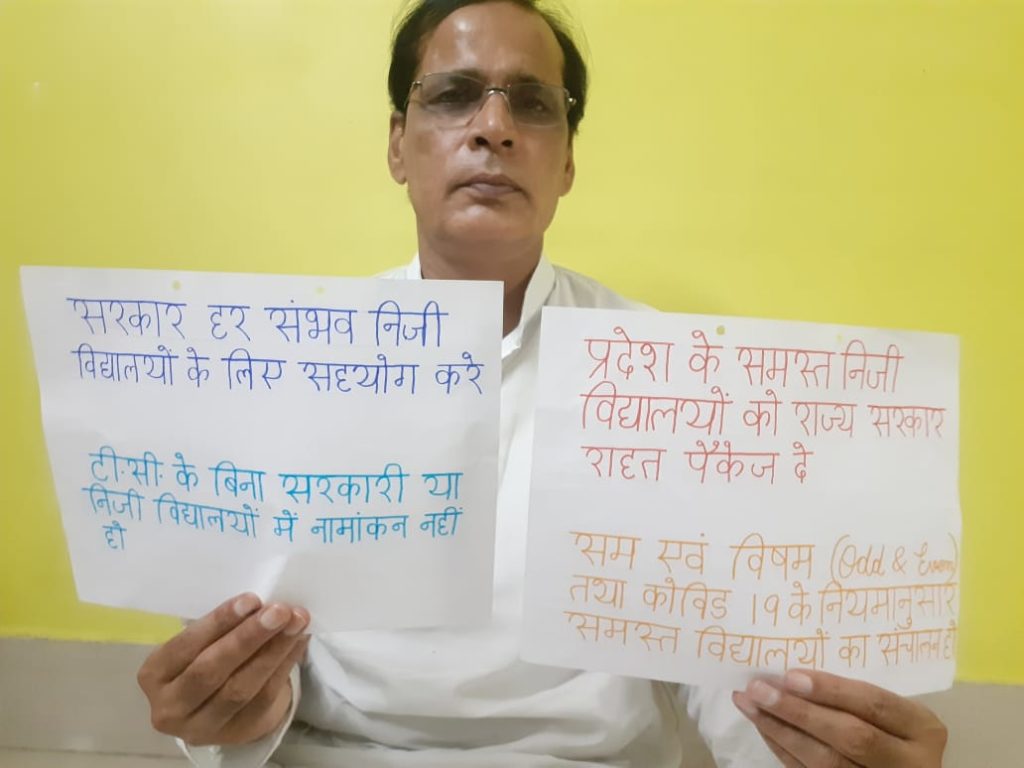 सरकार हर संभव निजी
विद्यालयों के लिए सहयोग करे
टी.सी. के बिना सरकारी या
निजी विद्यालयों में नामांकन नहीं
हो
प्रदेश के समस्त निजी
विद्यालयों को राज्य सरकार
राहत पैकेज दे
सम एवं विषम (Odd & Even)
तथा कोविड 19 के नियमानुसार
समस्त विद्यालयों का संचालन हो